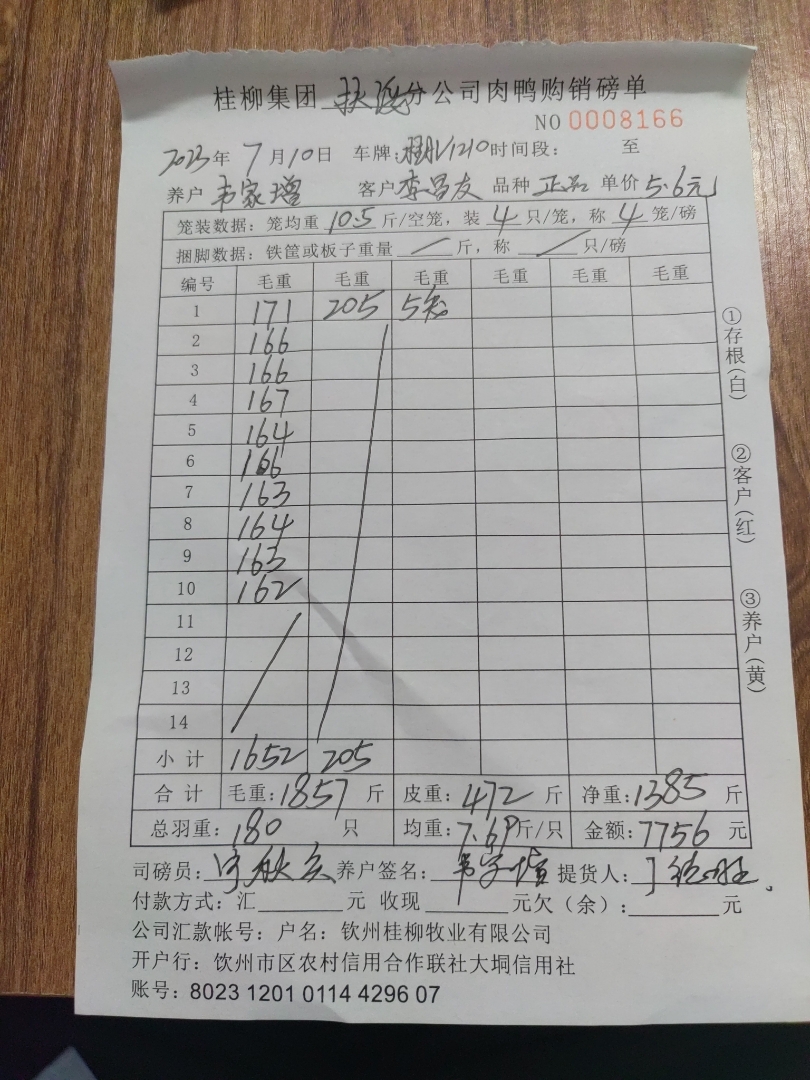 桂柳集团 扶绥分公司肉鸭购销磅单
NO 0008166
2023年 7月10日 车牌:桂N1210 时间段: 至
养户 韦家增 客户 李昌友 品种 正品 单价 5.6元
笼装数据:笼均重 10.5 斤/空笼,装 4 只/笼,称 4 笼/磅
捆脚数据:铁筐或板子重量 / 斤,称 / 只/磅
编号 毛重 毛重 毛重 毛重 毛重 毛重
1 171 205 5笼
2 166
3 166
4 167
5 164
6 166
7 163
8 164
9 163
10 162
11
12
13
14
小计 1652 205
合计 毛重:1857 斤 皮重:472 斤 净重:1385 斤
总羽重:180 只 均重:7.69斤/只 金额:7756 元
司磅员: 养户签名:韦家增 提货人:
付款方式:汇 元 收现 元欠(余): 元
公司汇款帐号:户名:钦州桂柳牧业有限公司
开户行:钦州市区农村信用合作联社大垌信用社
账号:8023 1201 0114 4296 07
①存根(白)
②客户(红)
③养户(黄)